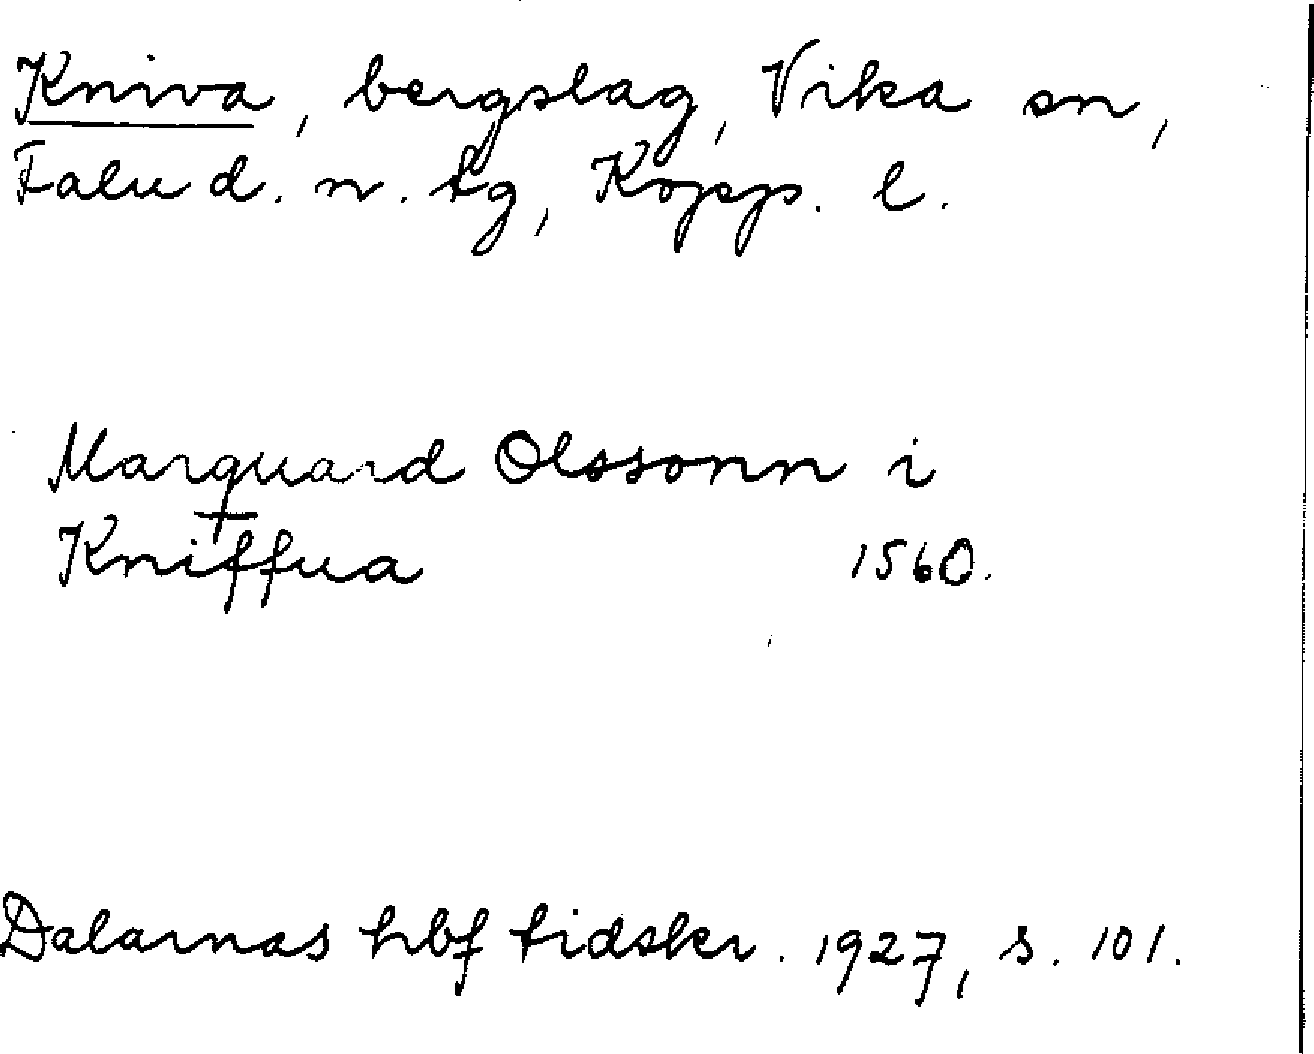 Kniva, bergslag, Vika sn,
Falu d. n. tg, Kopp. l.
Marquard Olssonn i
Kniffua 1560.
Dalarnas hbf tidskr. 1927, s. 101.